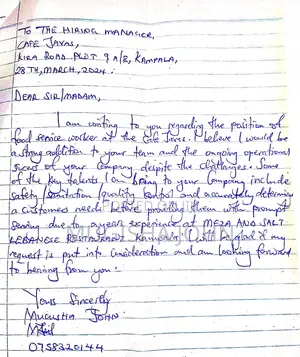 TO THE HIRING MANAGER,
CAFE JAVAS,
KIRA ROAD PLOT 9 A/B, KAMPALA,
28TH, MARCH, 2024.
DEAR SIR/MADAM,
I am writing to you regarding the position of
food service worker at the Cafe Javas. I believe I would be
a strong addition to your team and the ongoing operational
of your Company despite the challenges. Some
of the key talents I can bring to your Company include
Safety, Sanitation, quality Control and accurately determining
a customers needs before providing them with prompt
Serving due to 1 year experience at MEZA AND SALT
LEBANESE RESTAURANT Kampala. I will be glad if my
request is put into Consideration and am looking forward
to hearing from you.
Yours Sincerely
MUGUSHA JOHN
0758320144